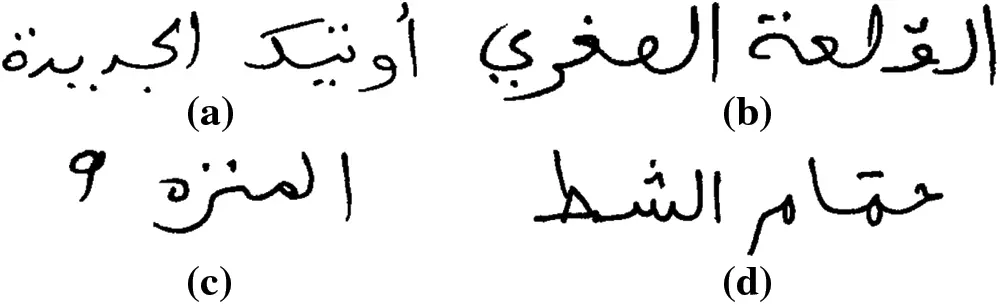 أوتيك الجديدة
(a)
القلعة الصغري
(b)
المنزه 9
(c)
حمّام الشط
(d)